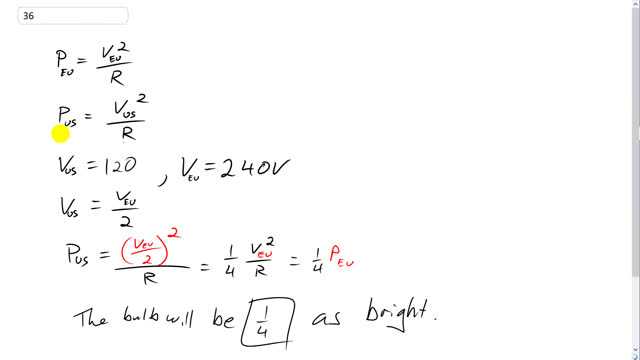 36
P_EU = V_EU² / R
P_US = V_US² / R
V_US = 120 , V_EU = 240V
V_US = V_EU / 2
P_US = (V_EU / 2)² / R = 1/4 V_EU² / R = 1/4 P_EU
The bulb will be 1/4 as bright.